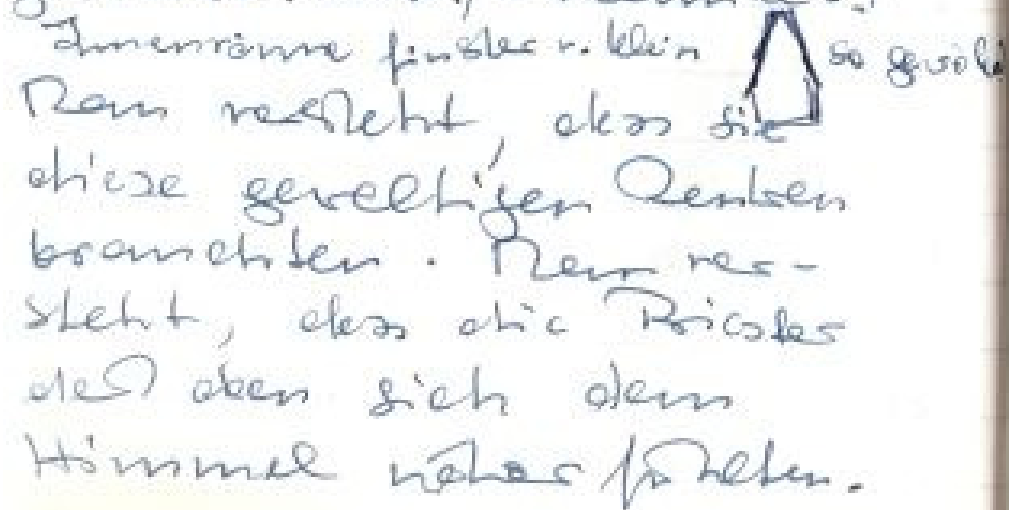 Innenräume finster u. klein so gewölb
Man versteht, dass sie
diese gewaltigen Bauten
brauchten. Man ver-
steht, dass die Priester
da oben sich dem
Himmel näher fühlten.